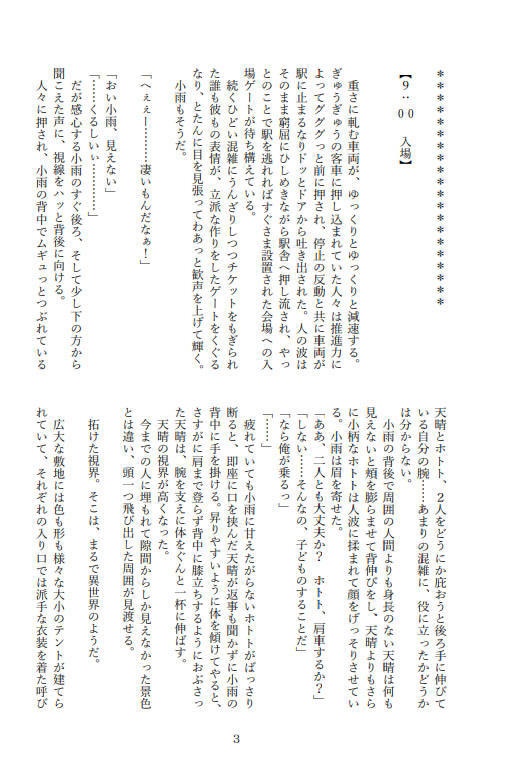 ＊＊＊＊＊＊＊＊＊＊＊＊＊＊＊＊＊＊
【９：００　入場】
重さに軋む車両が、ゆっくりとゆっくりと減速する。
ぎゅうぎゅうの客車に押し込まれていた人々は推進力に
よってグググっと前に押され、停止の反動と共に車両が
駅に止まるなりドッとドアから吐き出された。人の波は
そのまま窮屈にひしめきながら駅舎へ押し流され、やっ
とのことで駅を逃れればすぐさま設置された会場への入
場ゲートが待ち構えている。
続くひどい混雑にうんざりしつつチケットをもぎられ
た誰も彼もの表情が、立派な作りをしたゲートをくぐる
なり、とたんに目を見張ってわあっと歓声を上げて輝く。
小雨もそうだ。
「へぇぇー………凄いもんだなぁ！」
「おい小雨、見えない」
「……くるしいぃ…………」
だが感心する小雨のすぐ後ろ、そして少し下の方から
聞こえた声に、視線をハッと背後に向ける。
人々に押され、小雨の背中でムギュっとつぶれている
天晴とホトト、２人をどうにか庇おうと後ろ手に伸びて
いる自分の腕……あまりの混雑に、役に立ったかどうか
は分からない。
小雨の背後で周囲の人間よりも身長のない天晴は何も
見えないと頬を膨らませて背伸びをし、天晴よりもさら
に小柄なホトトは人波に揉まれて顔をげっそりさせてい
る。小雨は眉を寄せた。
「ああ、二人とも大丈夫か？　ホトト、肩車するか？」
「しない……そんなの、子どものすることだ」
「なら俺が乗るっ」
「……」
疲れていても小雨に甘えたがらないホトトがばっさり
断ると、即座に口を挟んだ天晴が返事も聞かずに小雨の
背中に手を掛ける。昇りやすいように体を傾けてやると、
さすがに肩まで登らず背中に膝立ちするようにおぶさっ
た天晴は、腕を支えに体をぐんと一杯に伸ばす。
天晴の視界が高くなった。
今までの人に埋もれて隙間からしか見えなかった景色
とは違い、頭一つ飛び出した周囲が見渡せる。
拓けた視界。そこは、まるで異世界のようだ。
広大な敷地には色も形も様々な大小のテントが建てら
れていて、それぞれの入り口では派手な衣装を着た呼び
3